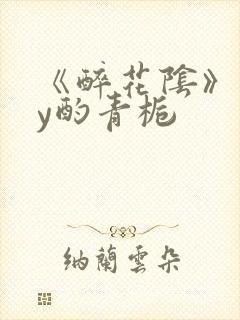 《醉花陰》
y酌青栀
納蘭雲朵